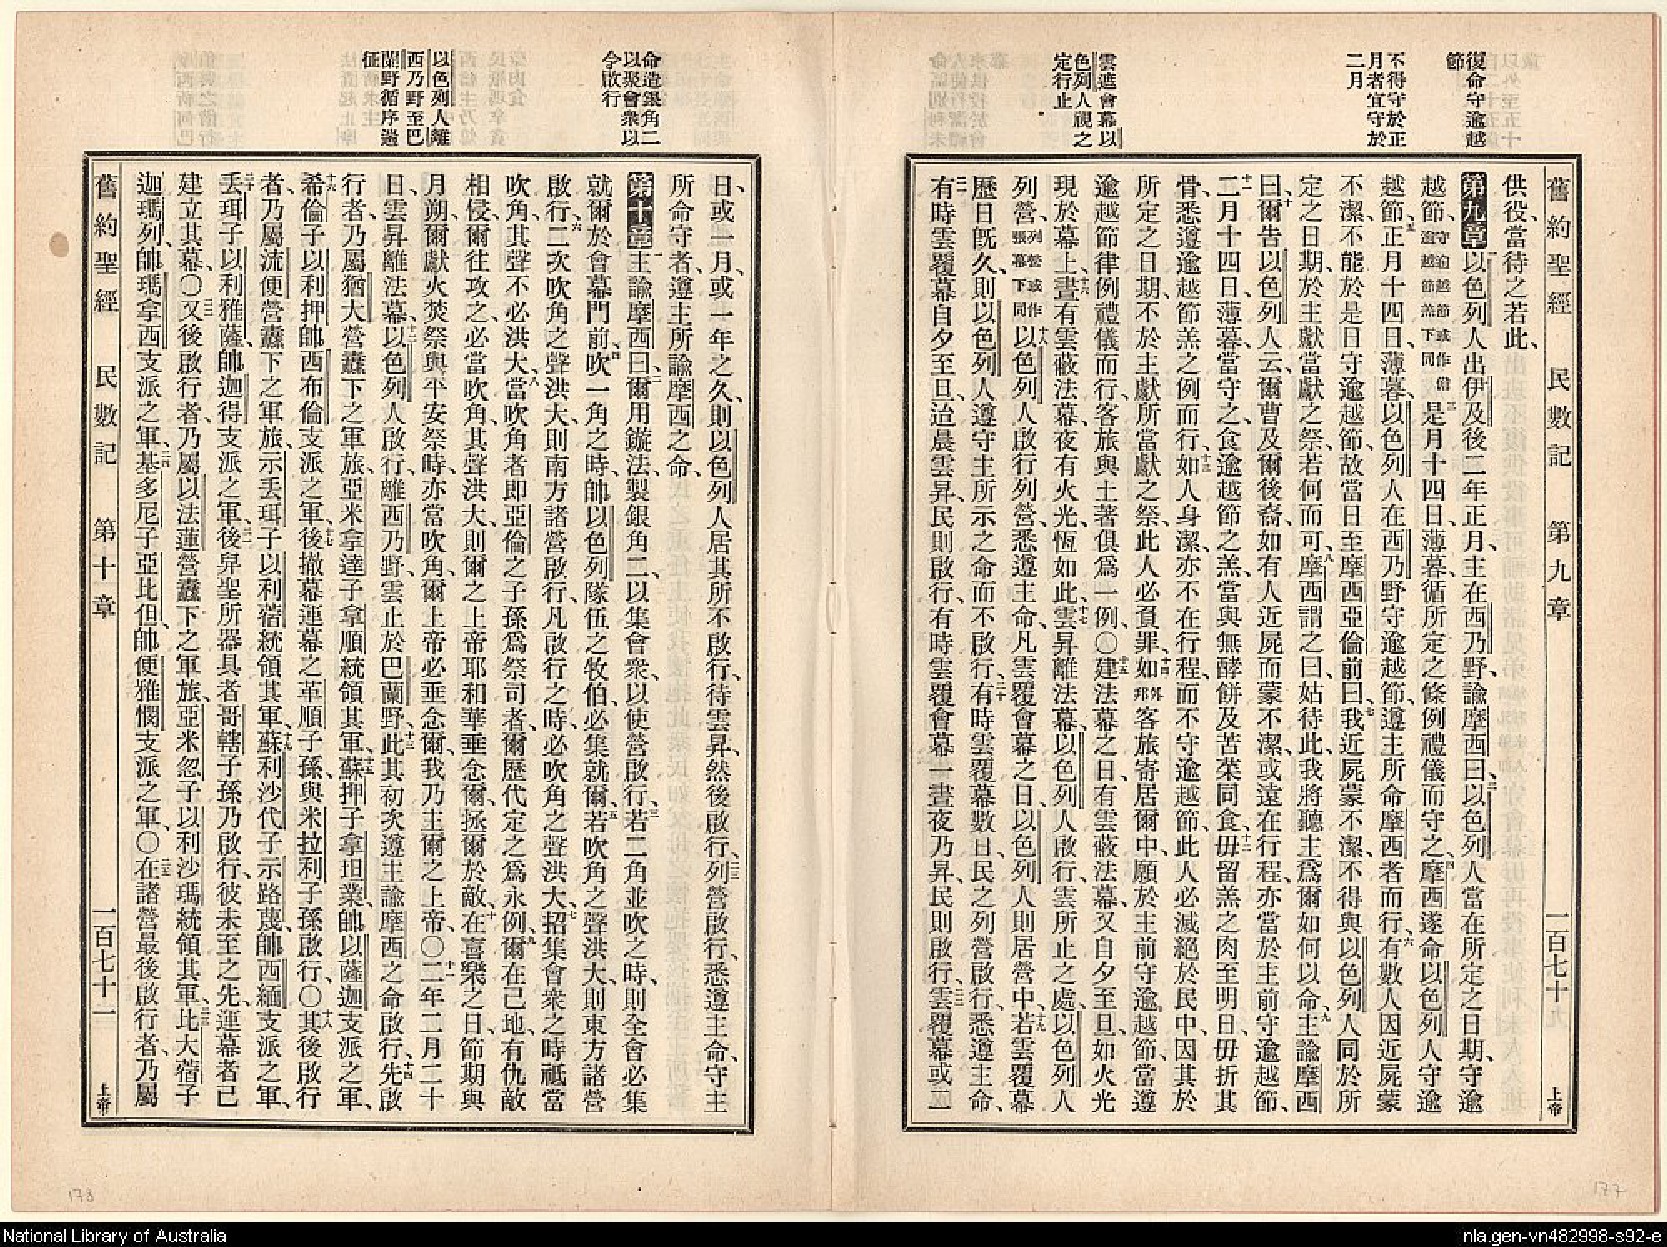 復命守逾越
節
不得守於正
月者宜守於
二月
雲遮會幕以
色列人視之
定行止
舊約聖經 民數記 第九章 一百七十九 上帝
供役、當待之若此、
第九章 以色列人出伊及後二年正月、主在西乃野、諭摩西曰、以色列人當在所定之日期、守逾
越節、守逾越節或作備逾越節羔下同 是月十四日薄暮、循所定之條例禮儀而守之、摩西遂命以色列人守逾
越節、正月十四日、薄暮、以色列人在西乃野守逾越節、遵主所命摩西者而行、有數人因近屍蒙
不潔、不能於是日守逾越節、故當日至摩西亞倫前曰、我近屍蒙不潔、不得與以色列人同於所
定之日期、於主獻當獻之祭、若何而可、摩西謂之曰、姑待此、我將聽主爲爾如何以命、主諭摩西
曰、爾告以色列人云、爾曹及爾後裔、如有人近屍而蒙不潔、或遠在行程、亦當於主前守逾越節、
二月十四日、薄暮、當守之、食逾越節之羔、當與無酵餅及苦菜同食、毋留羔之肉至明日、毋折其
骨、悉遵逾越節羔之例而行、如人身潔、亦不在行程、而不守逾越節、此人必滅絕於民中、因其於
所定之日期、不於主獻所當獻之祭、此人必負罪、如有客旅寄居爾中、願於主前守逾越節、當遵
逾越節律例禮儀而行、客旅與土著俱爲一例、〇建法幕之日、有雲蔽法幕、又自夕至旦、如火光
現於幕上、晝有雲蔽法幕、夜有火光、恆如此、雲昇離法幕、以色列人啟行、雲所止之處、以色列人
列營、列營或作張幕下同 以色列人啟行列營、悉遵主命、凡雲覆會幕之日、以色列人則居營中、若雲覆幕
歷日旣久、則以色列人遵守主所示之命而不啟行、有時雲覆幕數日、民之列營啟行、悉遵主命、
有時雲覆幕自夕至旦、迨晨雲昇、民則啟行、有時雲覆會幕一晝夜乃昇、民則啟行、雲覆幕或二
命造銀角二
以聚會衆以
令啟行
以色列人離
西乃野至巴
蘭野循序遄
征
日、或一月、或一年之久、則以色列人居其所不啟行、待雲昇、然後啟行、列營啟行、悉遵主命、守主
所命守者、遵主所諭摩西之命、
第十章 主諭摩西曰、爾用鏇法製銀角二、以集會衆、以使營啟行、若二角並吹之時、則全會必集
就爾於會幕門前、吹一角之時、帥以色列隊伍之牧伯、必集就爾、若吹角之聲洪大、則東方諸營
啟行、二次吹角之聲洪大、則南方諸營啟行、凡啟行之時、必吹角之聲洪大、招集會衆之時、祗當
吹角、其聲不必洪大、當吹角者、即亞倫之子孫爲祭司者、爾歷代定之爲永例、爾在己地、有仇敵
相侵、爾往攻之、必當吹角、其聲洪大、則爾之上帝耶和華垂念爾、拯爾於敵、在喜樂之日、節期與
月朔、爾獻火焚祭與平安祭時、亦當吹角、爾上帝必垂念爾、我乃主爾之上帝、〇二年二月二十
日、雲昇離法幕、以色列人啟行、離西乃野、雲止於巴蘭野、此其初次遵主諭摩西之命啟行、先啟
行者、乃屬猶大營纛下之軍旅、亞米拿達子拿順統領其軍、蘇押子拿坦業、帥以薩迦支派之軍、
希倫子以利押、帥西布倫支派之軍、後撤幕、運幕之革順子孫、與米拉利子孫啟行、〇其後啟行
者、乃屬流便營纛下之軍旅、示丟珥子以利蓿統領其軍、蘇利沙代子示路蔑、帥西緬支派之軍、
丟珥子以利雅薩、帥迦得支派之軍、後舁聖所器具者、哥轄子孫乃啟行、彼未至之先、運幕者已
建立其幕、〇又後啟行者、乃屬以法蓮營纛下之軍旅、亞米忽子以利沙瑪統領其軍、比大蓿子
迦瑪列、帥瑪拿西支派之軍、基多尼子亞比但、帥便雅憫支派之軍、〇在諸營最後啟行者、乃屬
舊約聖經 民數記 第十章 一百七十一 上帝
178
177
National Library of Australia
nla.gen-vn482998-s92-e